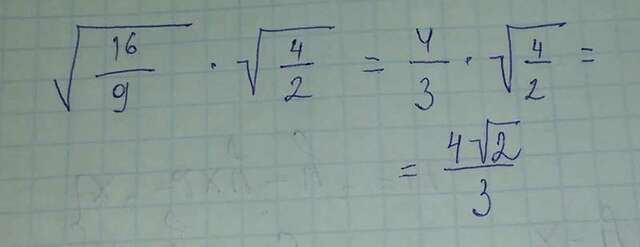 √(16/9) · √(4/2) = 4/3 · √(4/2) =
= 4√2/3